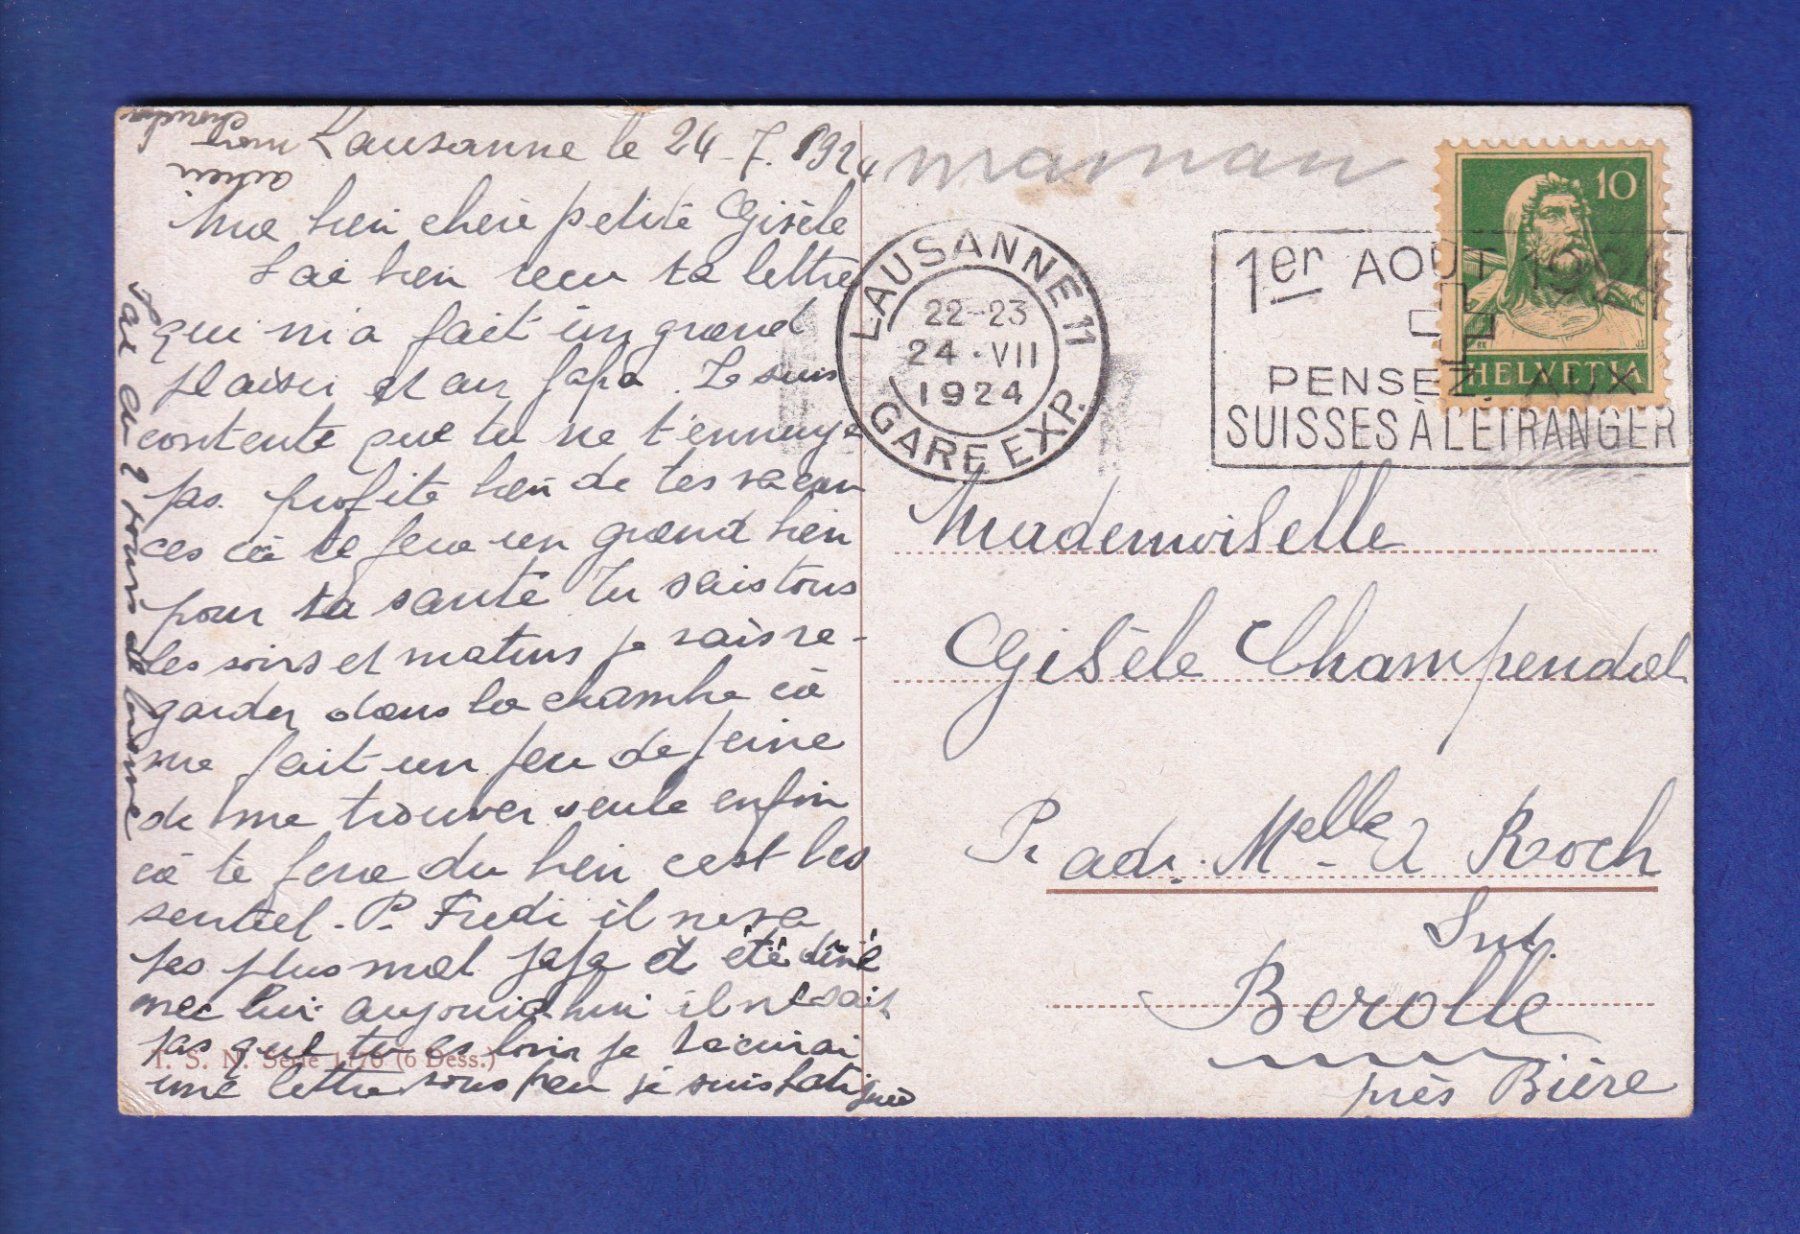 Lausanne le 24-7. 1924
Ma bien chère petite Gisèle
J'ai bien recu ta lettre
qui m'a fait un grand
plaisir et au papa. Je suis
contente que tu ne t'ennuye
pas. profite bien de tes vacan
ces cà te fera un grand bien
pour ta santé Tu sais tous
les soirs et matins je vais re-
garder dans la chambre cà
me fait un peu de peine
de me trouver seule enfin
cà te fera du bien c'est les
sentiel. P. Fredi il ne va
pas plus mal papa à été diné
avec lui aujourd'hui il ne sait
pas que tu es loin je t'écrirai
une lettre sous peu je suis fatiguée
J'ai eu 2 jours de
T. S. N. Serie 1170 (6 Dess.)
maman
LAUSANNE 11
22-23
24·VII
1924
GARE EXP.
1er AOUT 1924
PENSEZ AUX
SUISSES À L'ETRANGER
10
HELVETIA
Mademoiselle
Gisèle Champendal
Pr adr. Melle A Roch
Inst.
Berolle
près Bière